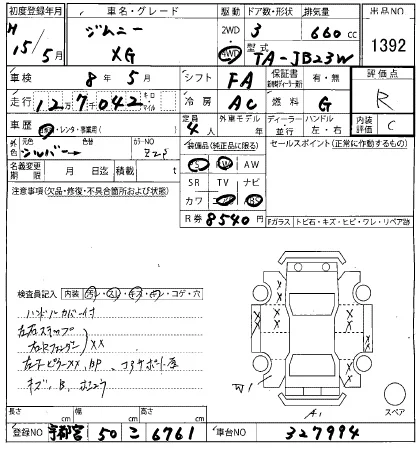 初度登録年月 車名・グレード 駆動 ドア数・形状 排気量 出品NO
H 15年5月 ジムニー XG 2WD 4WD 3 660cc
型式 TA-JB23W 1392
車検 8年5月 シフト FA 保証書 有・無 評価点
走行 127,042 キロ マイル 冷房 AC 燃料 G R
車歴 自家用・レンタ・事業用( ) 定員 4人 外車モデル 年 ディーラー・並行 ハンドル 左・右 内装評価 C
外色 元色 シルバー 色替 カラーNO Z2S 装備品(純正品に限る) セールスポイント(正常に作動するもの)
名義変更期限 月 日迄 積載 t PS PW AW
注意事項(欠品・修復・不具合箇所および状態) SR TV ナビ
カワ AB
R券 8540円 Fガラス トビ石・キズ・ヒビ・ワレ・リペア跡
検査員記入 内装 ヨゴレ・スレ・キズ・コゲ・穴
ハンドルカバー付
左右ステップ
左右Rフェンダー XX
キズ、B、
W1
A1
スペア
長さ cm 幅 cm 高さ cm
登録NO 宇都宮 50 こ 6761 車台NO 327994